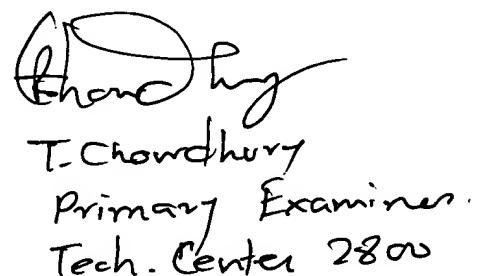 Chowdhury
T. Chowdhury
Primary Examiner.
Tech. Center 2800